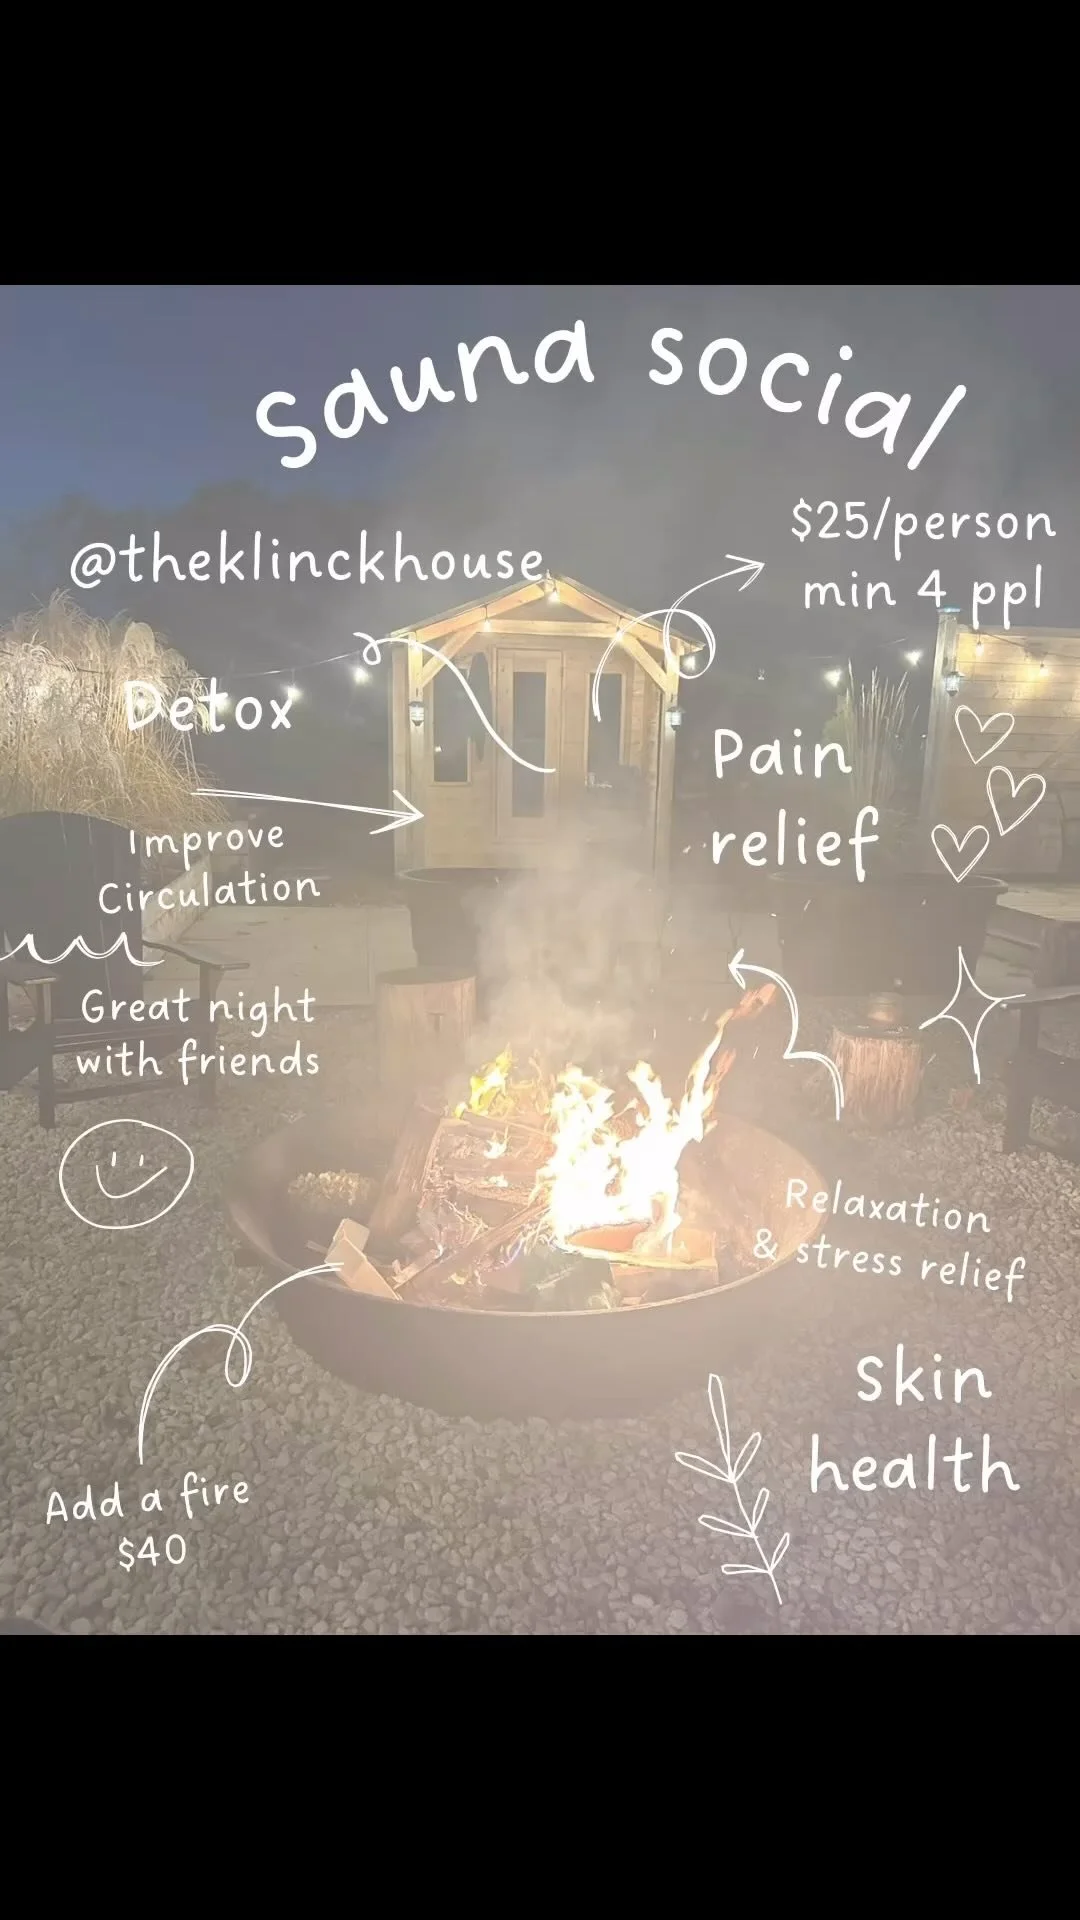 Sauna social
@theklinckhouse
$25/person
min 4 ppl
Detox
Pain
relief
Improve
Circulation
Great night
with friends
Relaxation
& stress relief
Skin
health
Add a fire
$40